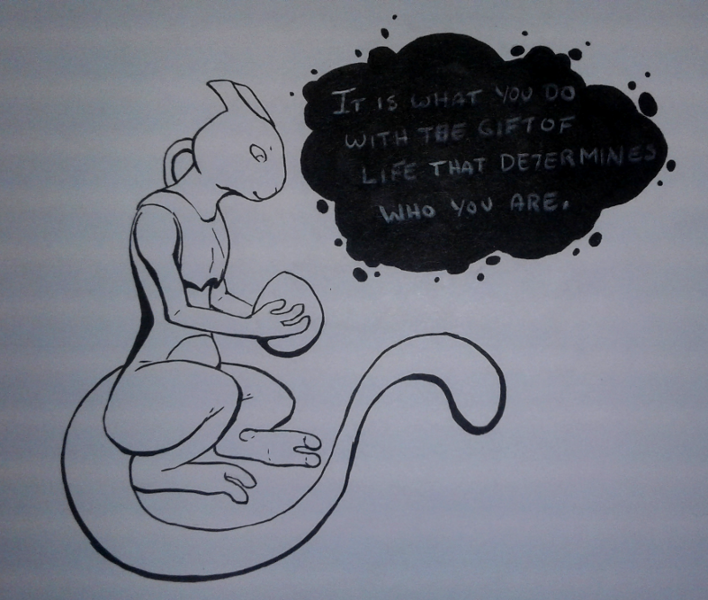 IT IS WHAT YOU DO
WITH THE GIFT OF
LIFE THAT DETERMINES
WHO YOU ARE.